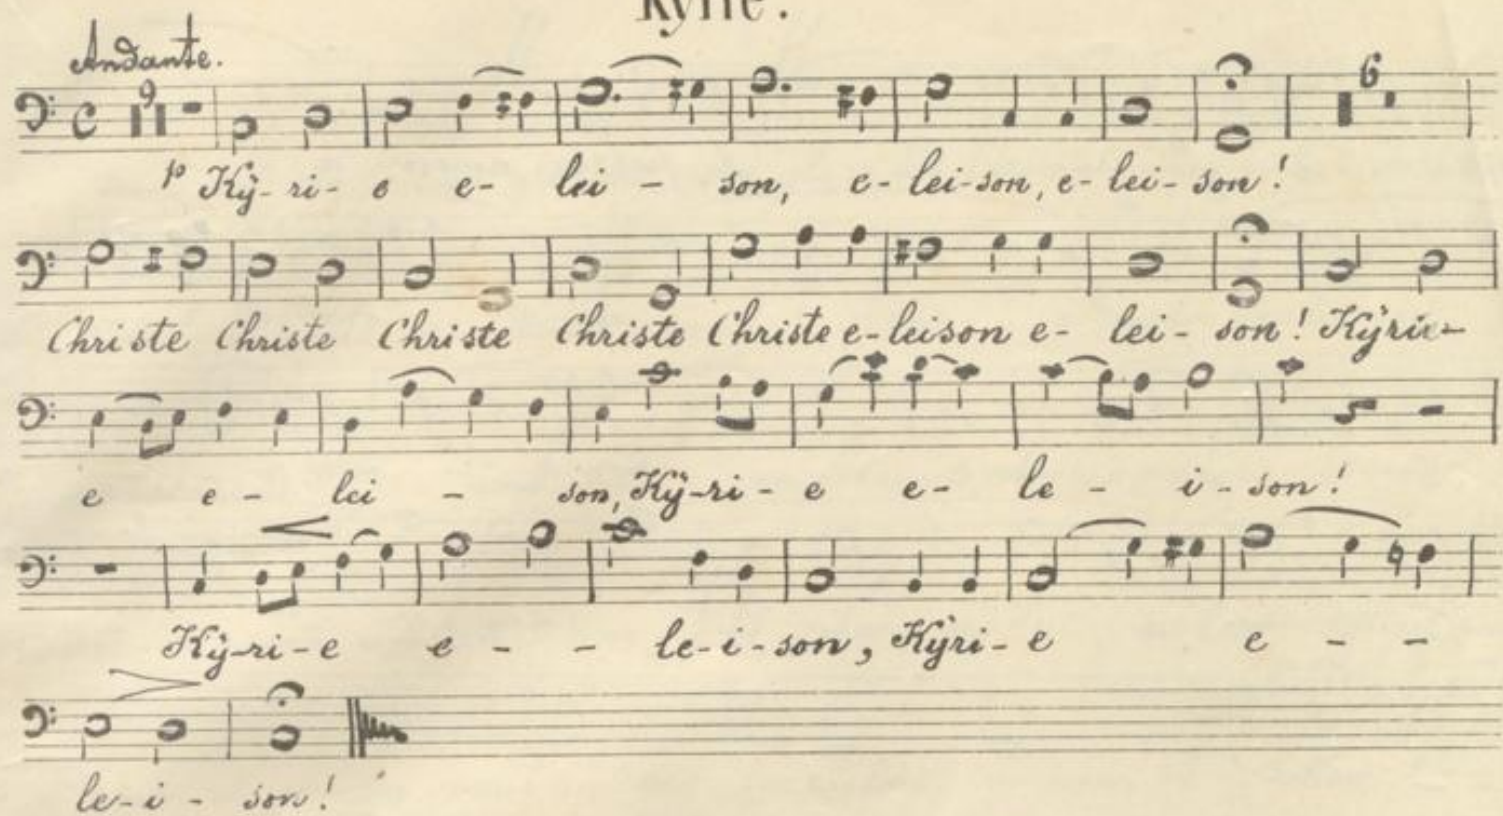 Kyrie.
Andante.
9
6
p Kÿ-ri-e e-lei-son, e-lei-son, e-lei-son!
Christe Christe Christe Christe Christe e-leison e-lei-son! Kÿrie
e e-lei-son, Kÿ-ri-e e-le-i-son!
Kÿ-ri-e e--le-i-son, Kÿri-e e--
le-i-son!